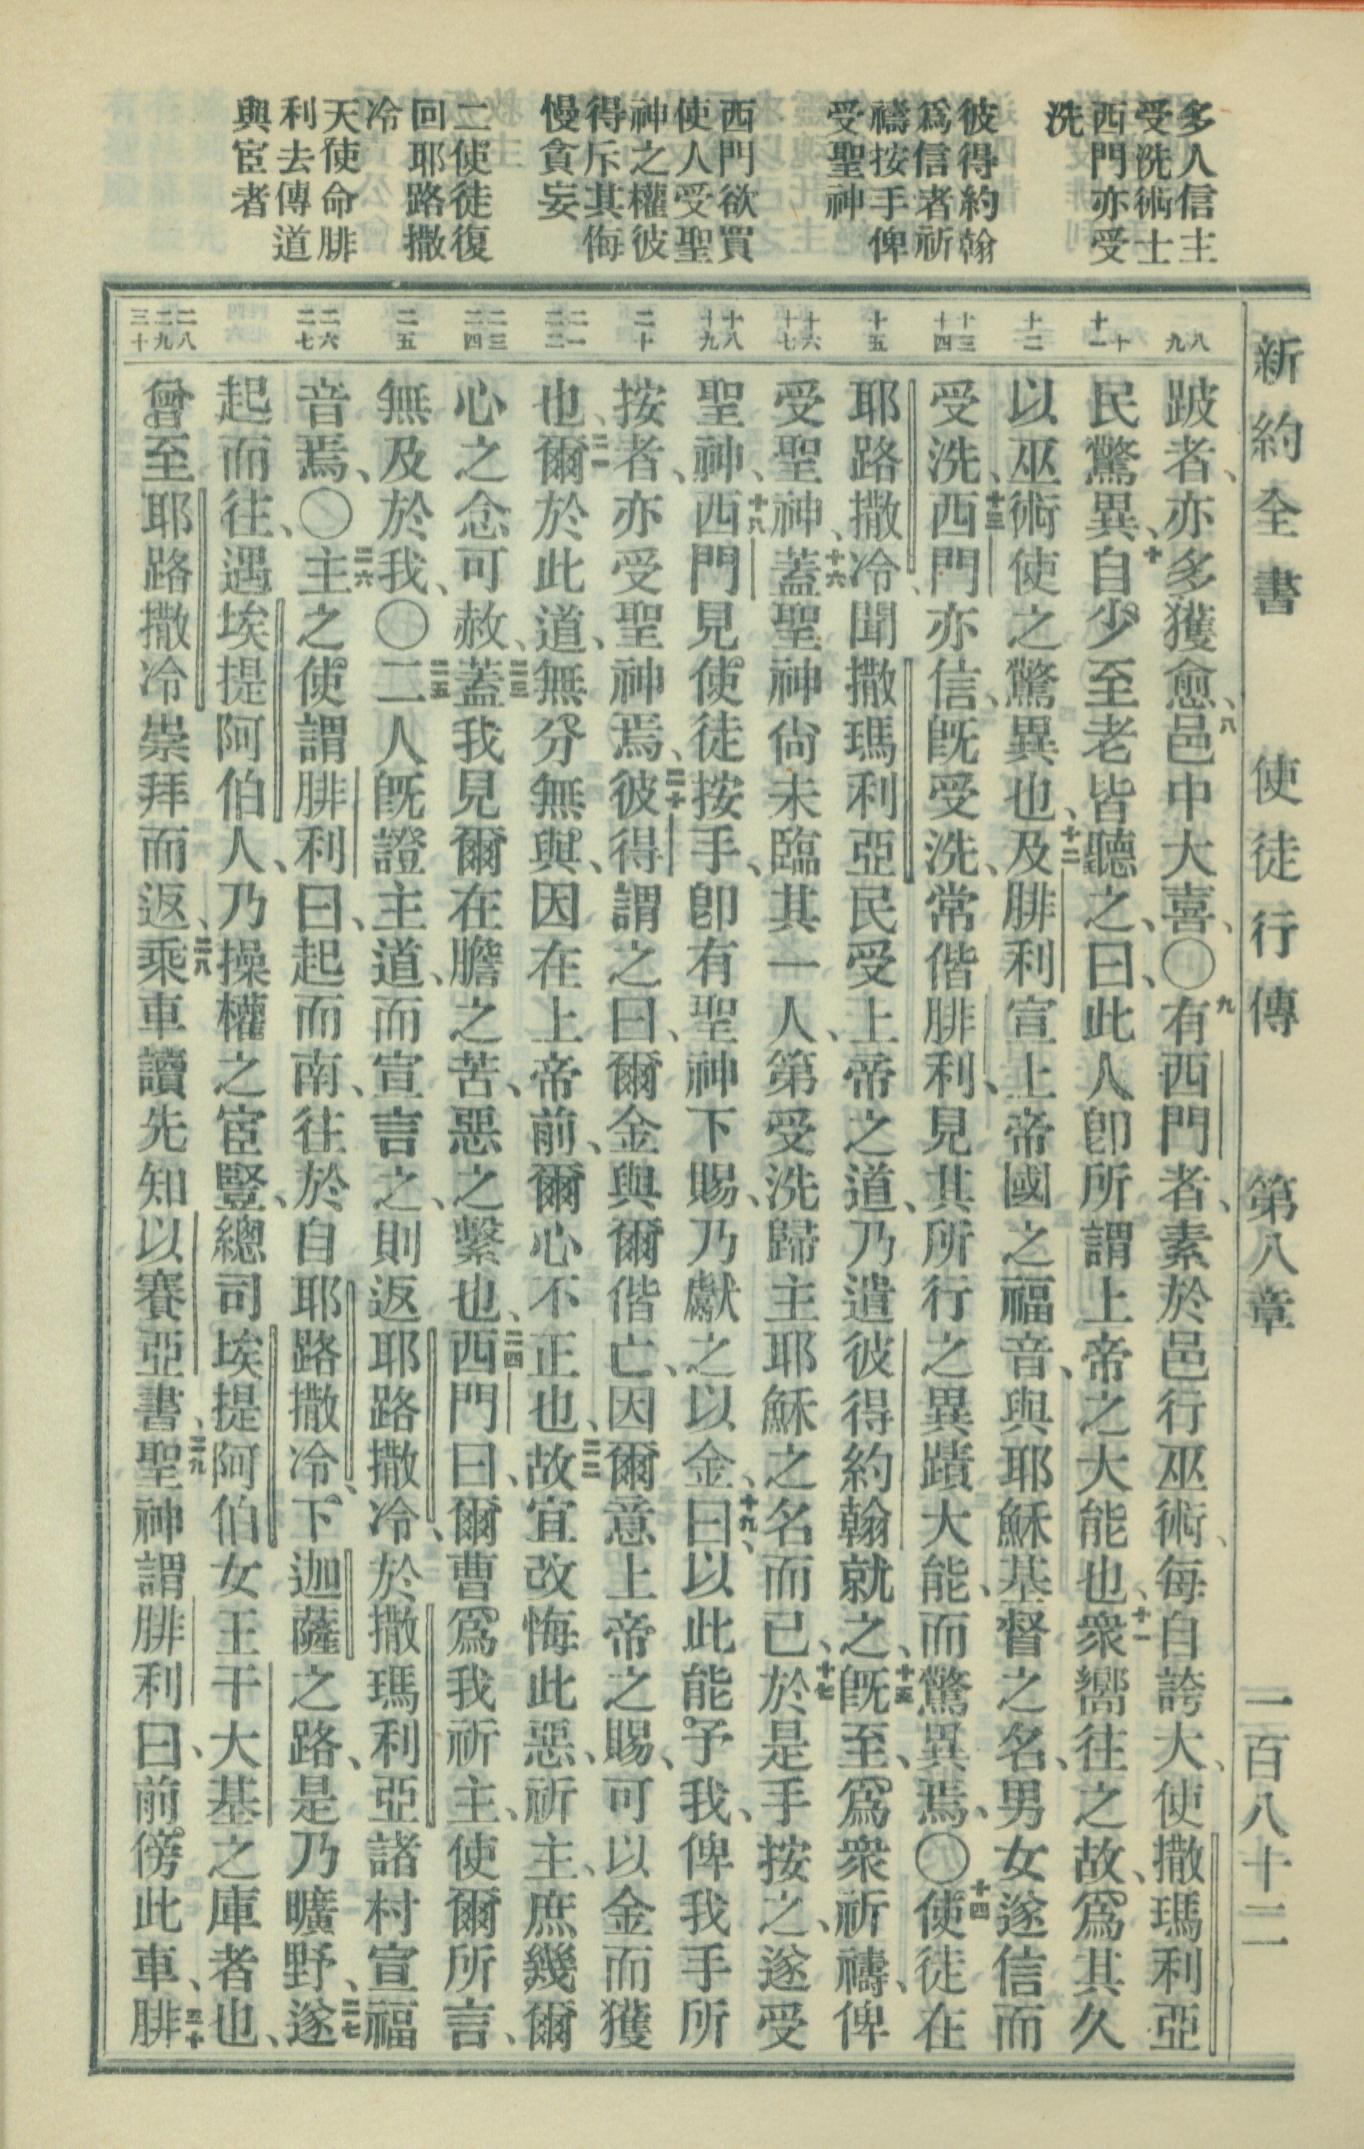 新約全書　使徒行傳　第八章　一百八十二
多人信主
受洗術士
西門亦受
洗
彼得約翰
爲信者祈
禱按手俾
受聖神
西門欲買
使人受聖
神之權彼
得斥其侮
慢貪妄
二使徒復
回耶路撒
冷
天使命腓
利去傳道
與宦者
八
九
十
十一
十二
十三
十四
十五
十六
十七
十八
十九
二十
二一
二二
二三
二四
二五
二六
二七
二八
二九
三十
跛者、亦多獲愈、八邑中大喜、〇九有西門者、素於邑行巫術、每自誇大、使撒瑪利亞
民驚異、十自少至老皆聽之、曰、此人卽所謂上帝之大能也、十一衆嚮往之故、爲其久
以巫術使之驚異也、十二及腓利宣上帝國之福音、與耶穌基督之名、男女遂信而
受洗、十三西門亦信、旣受洗、常偕腓利、見其所行之異蹟大能、而驚異焉、〇十四使徒在
耶路撒冷、聞撒瑪利亞民受上帝之道、乃遣彼得約翰就之、十五旣至、爲衆祈禱、俾
受聖神、十六蓋聖神尙未臨其一人、第受洗歸主耶穌之名而已、十七於是手按之、遂受
聖神、十八西門見使徒按手、卽有聖神下賜、乃獻之以金、十九曰、以此能予我、俾我手所
按者、亦受聖神焉、二十彼得謂之曰、爾金與爾偕亡、因爾意上帝之賜、可以金而獲
也、二一爾於此道、無分無與、因在上帝前、爾心不正也、二二故宜改悔此惡、祈主、庶幾爾
心之念可赦、二三蓋我見爾在膽之苦、惡之繫也、二四西門曰、爾曹爲我祈主、使爾所言、
無及於我、〇二五二人旣證主道、而宣言之、則返耶路撒冷、於撒瑪利亞諸村宣福
音焉、〇二六主之使謂腓利曰、起而南、往於自耶路撒冷、下迦薩之路、是乃曠野、二七遂
起而往、遇埃提阿伯人、乃操權之宦豎、總司埃提阿伯女王干大基之庫者也、
曾至耶路撒冷崇拜而返、二八乘車讀先知以賽亞書、二九聖神謂腓利曰、前傍此車、三十腓